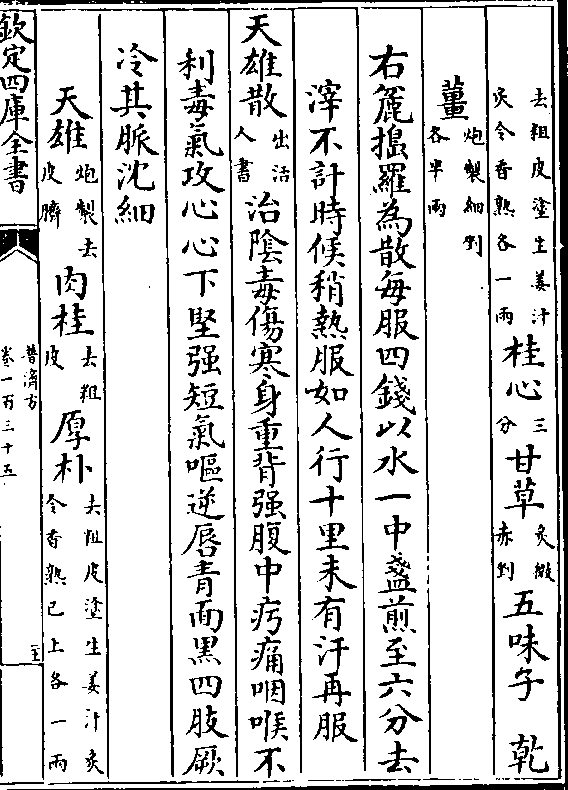 去粗皮塗生姜汁炙令香熟各一兩桂心三分甘草炙微赤剉五味子 乾
薑炮製細剉各半兩
右麄搗羅為散每服四錢以水一中盞煎至六分去
滓不計時候稍熱服如人行十里未有汗再服
天雄散出活人書治陰毒傷寒身重背强腹中㽱痛咽喉不
利毒氣攻心心下堅强短氣嘔逆唇青面黑四肢厥
冷其脈沈細
天雄炮製去皮臍肉桂去粗皮厚朴去粗皮塗生姜汁炙令香熟已上各一兩
欽定四庫全書
普濟方
卷一百三十五